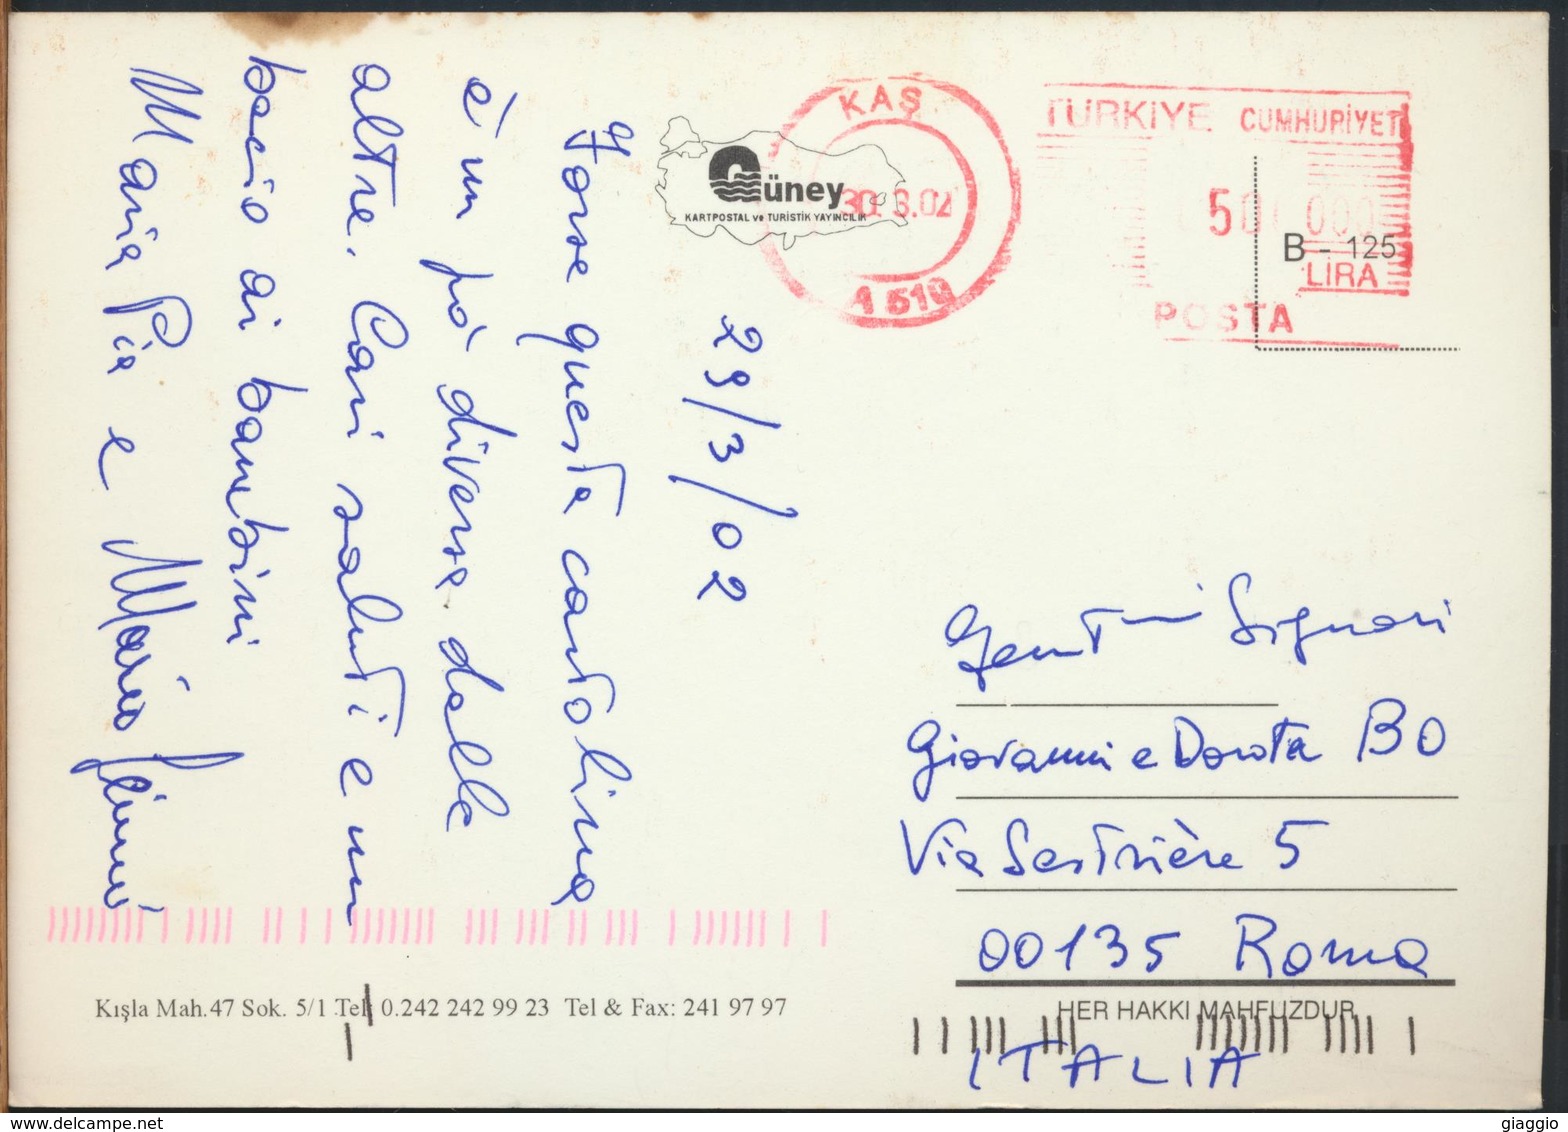 29/3/02
Forse questa cartolina
è un pò diversa dalla
altre. Cari saluti e un
bacio ai bambini
Maria Pia e Mario
Güney
KARTPOSTAL ve TURİSTİK YAYINCILIK
KAŞ
30. 3.02
TÜRKİYE CUMHURİYET
000
LIRA
POSTA
B - 125
Gent.mi Signori
Giovanni e Dorota BO
Via Sestrière 5
00135 Roma
ITALIA
Kışla Mah.47 Sok. 5/1 Tel: 0.242 242 99 23 Tel & Fax: 241 97 97
HER HAKKI MAHFUZDUR
www.delcampe.net
giaggio